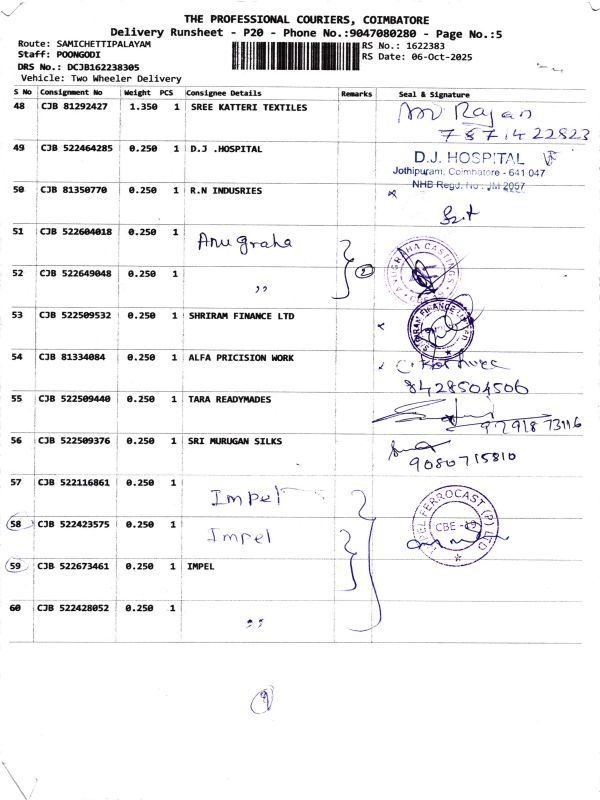 THE PROFESSIONAL COURIERS, COIMBATORE
Delivery Runsheet - P20 - Phone No.:9047080280 - Page No.:5
Route: SAMICHETTIPALAYAM
Staff: POONGODI
DRS No.: DCJB162238305
Vehicle: Two Wheeler Delivery
RS No.: 1622383
RS Date: 06-Oct-2025
S No Consignment No Weight PCS Consignee Details Remarks Seal & Signature
48 CJB 81292427 1.350 1 SREE KATTERI TEXTILES
Rajan
7871422823
49 CJB 522464285 0.250 1 D.J .HOSPITAL
D.J. HOSPITAL
Jothipuram, Coimbatore - 641 047
NHB Regd. No. JM 2057
50 CJB 81350770 0.250 1 R.N INDUSRIES
51 CJB 522604018 0.250 1 Anugraha
ANUGRAHA CASTINGS
52 CJB 522649048 0.250 1 ,,
2
53 CJB 522509532 0.250 1 SHRIRAM FINANCE LTD
54 CJB 81334084 0.250 1 ALFA PRICISION WORK
8428504506
55 CJB 522509440 0.250 1 TARA READYMADES
9791873116
56 CJB 522509376 0.250 1 SRI MURUGAN SILKS
9080715810
57 CJB 522116861 0.250 1 Impel
IMPEL FERROCAST (P) LTD
CBE -19
58 CJB 522423575 0.250 1 Impel
59 CJB 522673461 0.250 1 IMPEL
60 CJB 522428052 0.250 1 ,,